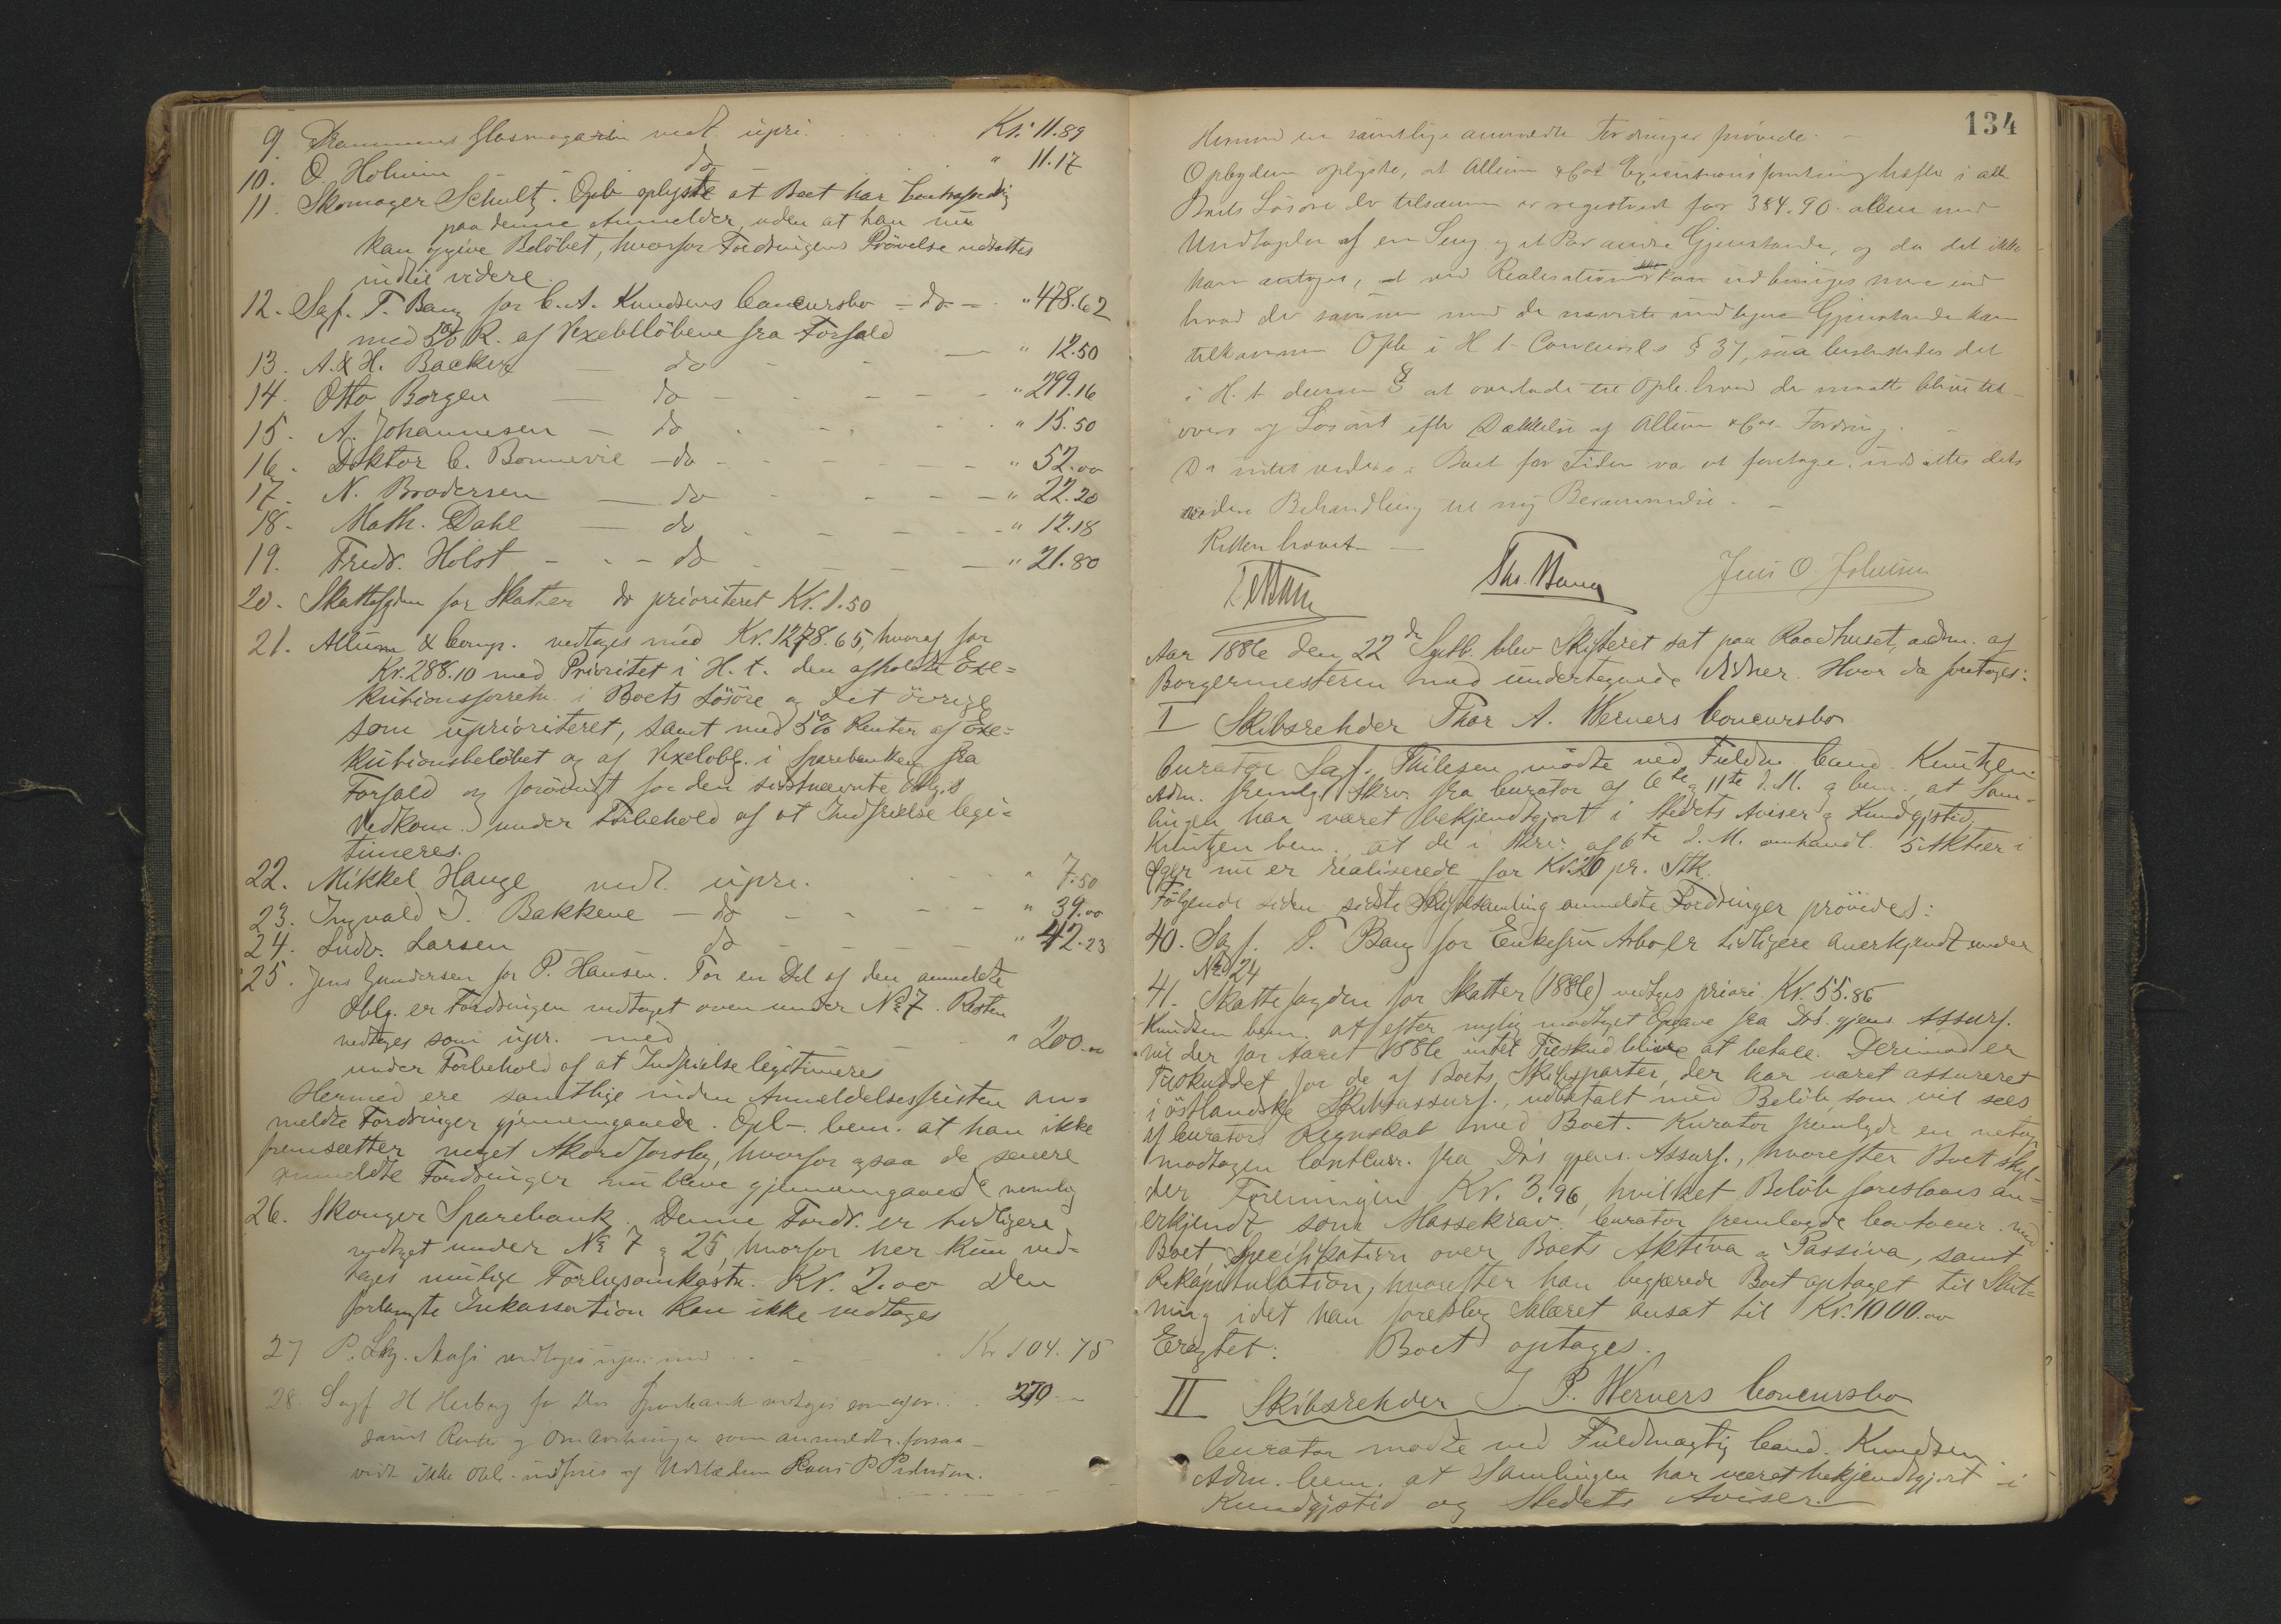 9. Drammens Glasmagasin vedt. upri. Kr. 11.89
10. O. Holmen do " 11.17
11. Skomager Schultz. Opb. oplyste at Boet har Contrafordrig
paa denne Anmelder, uden at han nu
kan opgive Beløbet, hvorfor Fordringens Prövelse udsattes
indtil videre.
12. Sagf. T. Bang for C. A. Knudsens Concursbo - do - " 478.62
med 5% R. af Vexelbeløbene fra Forfald
13. A. & H. Backer - do - " 12.50
14. Otto Borgen - do - " 299.16
15. A. Johannesen - do " 15.50
16. Doktor C. Bonnevie - do - " 52.00
17. N. Brodersen - do - " 22.20
18. Math. Dahl - do - " 12.18
19. Fredr. Holst - do - " 21.80
20. Skattefgden for Skatter do prioriteret Kr. 1.50
21. Allum & Comp. vedtages med Kr. 1278.65, hvoraf for
Kr. 288.10 med Prioritet i H. t. den afholdte Exe=
kutionsforretn. i Boets Løsöre og det övrige
som uprioriteret, samt med 5% Renter af Exe=
kutionsbeløbet og af Vexeloblg. i Sparebanken fra
Forfald og forövrigt for den sidstnævnte Oblg.s
Vedkom. under Forbehold af at Indfrielse legi=
timeres.
22. Mikkel Hauge vedt. upri. " 7.50
23. Ingvald J. Bakkene - do - " 39.00
24. Ludv. Larsen do - " 42.23
25. Jens Gundersen for P. Hansen. For en Del af den anmeldte
Oblg. er Fordringen vedtaget oven under No 7. Resten
vedtages som upr. med " 200.00
under Forbehold af at Indfrielse legitimeres
Hermed ere samtlige inden Anmeldelsesfristen an=
meldte Fordringer gjennemgaaede. Opb. bem. at han ikke
fremsætter noget Akkordforslag, hvorfor ogsaa de senere
anmeldte Fordringer nu bleve gjennemgaaede nemlig
26. Skouger Sparebank. Denne Fordr. er tidligere
vedtaget under No 7 & 25, hvorfor her kun ved=
tages mulige Forligsomkostn. Kr. 2.00 Den
forlangte Inkassation kan ikke vedtages
27 P. Lbg. vedtages upr. med Kr 104.75
28. Sagf H Herberg for Sparebank vedtages som upr. 270 -
samt Renter og Omkostninger som anmeldt, forsaa-
vidt ikke Obl. indfries af Udstederen Hans P Pedersen.
134
Hermed er samtlige anmeldte Fordringer prövede. -
Opbyderen oplyste, at Allum & Co's Executionsforretning hefter i alt
Boets Lösöre der tilsammen er registreret for 384.90 alene med
Undtagelse af en Seng og et Par andre Gjenstande, og da det ikke
kan antages, at ved Realisation kan udbringes mere end
hvad der sammen med de nævnte undtagne Gjenstande kan
tilkomme Opb. i H. t. Concursl. § 37, saa besluttedes det
i H. t. denne § at overlade til Opb. hvad der maatte blive til-
overs af Lösöret efter Dækkelse af Allum & Co's Fordring. -
Da intet videre i Boet for Tiden var at foretage, udsattes dets
videre Behandling til ny Berammelse. -
Retten hævet -
Ths. Bang Jens O. Johnsen
Aar 1886 den 22de Septb. blev Skifteret sat paa Raadhuset, adm. af
Borgermesteren med undertegnede Vidner. Hvor da foretages:
I Skibsrehder Thor A. Werners Concursbo
Curator Sagf. Thilesen mödte ved Fuldm. Cand. Knutzen.
Adm. fremlgl. Skriv. fra Curator af 6te & 11te d. M. & bem. at Sam-
lingen har været bekjendtgjort i Stedets Aviser & Kundgjstid.
Knutzen bem. at de i Skriv. af 6te d. M. omhandl. 5 Aktier i
Ager nu er realiserede for Kr. 20 pr. Stk.
Følgende siden sidste Skiftesamling anmeldte Fordringer prövedes:
40. Sagf. T. Bang for Enkefru Arbo er tidligere anerkjendt under
No 24
41. Skattefogden for Skatter (1886) vedtages priori. Kr. 55.86
Knudsen bem. at efter nylig modtaget Opgave fra D's gjens. Assurf.
vil der for Aaret 1886 intet Tilskud blive at betale. Derimod er
Tilskuddet for de af Boets Skibsparter, der har været assureret
i östlandske Skibsassurf., udbetalt med Beløb som vil sees
af Curators Regnskab med Boet. Kurator fremlagde en netop
modtagen Contcur. fra D's gjens. Assurf., hvorefter Boet skyl-
der Foreningen Kr. 3.96, hvilket Beløb foreslaaes an=
erkjendt som Massekrav. Curator fremlagde Contocur. med
Boet Specifikation over Boets Aktiva & Passiva, samt
Rekapitulation, hvorefter han begjærede Boet optaget til Slut=
ning idet han foreslog Salæret ansat til Kr. 1000.00
Eragtet: Boet optages.
II Skibsrehder J. P. Werners Concursbo
Curator mödte ved Fuldmægtig Cand. Knudsen
Adm. bem. at Samlingen har været bekjendtgjort i
Kundgjstid og Stedets Aviser. -